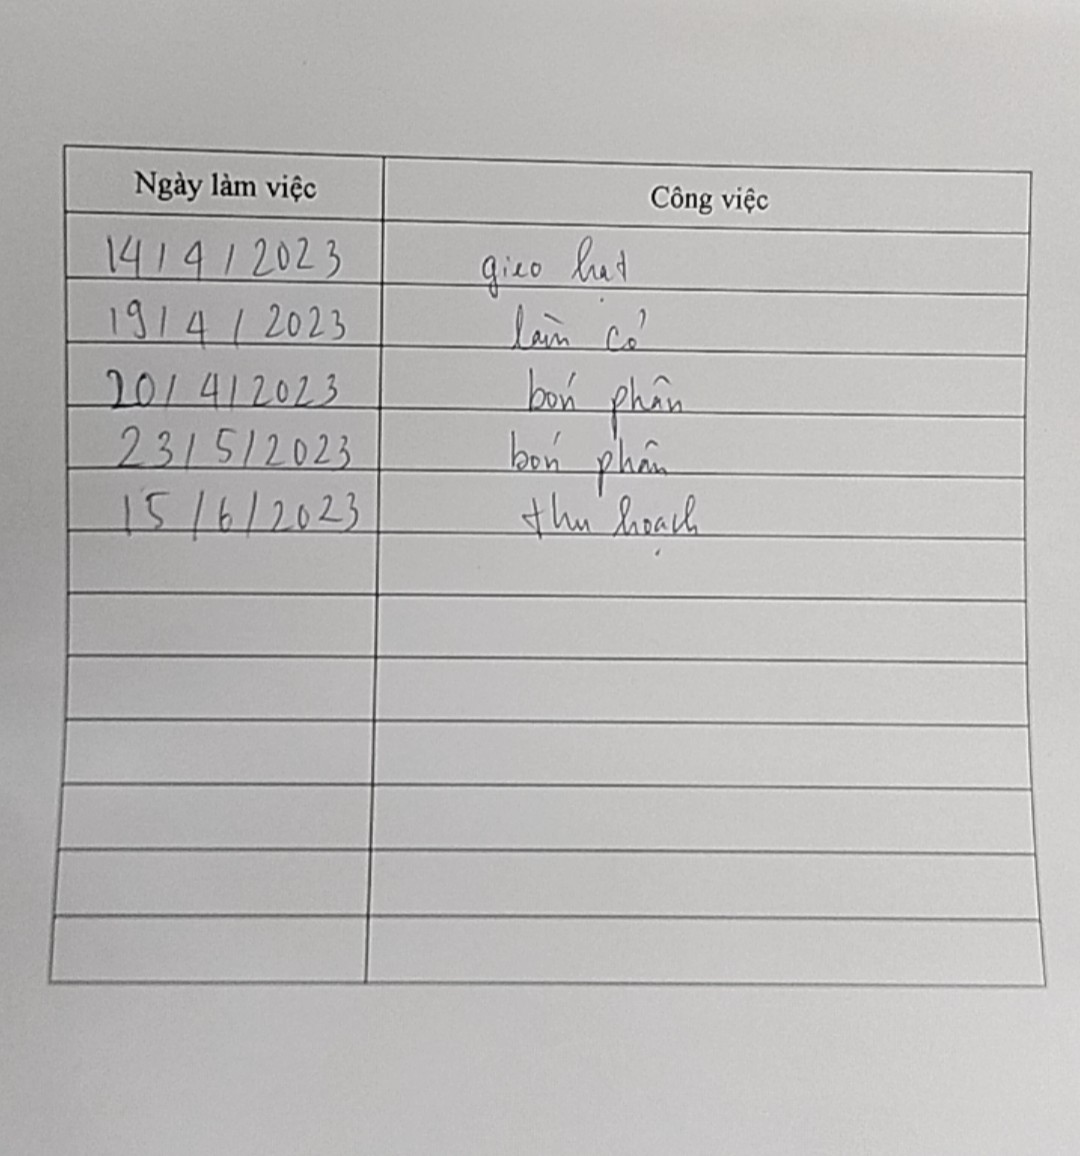 Ngày làm việc Công việc
14/4/2023 gieo hạt
19/4/2023 làm cỏ
20/4/2023 bón phân
23/5/2023 bón phân
15/6/2023 thu hoạch